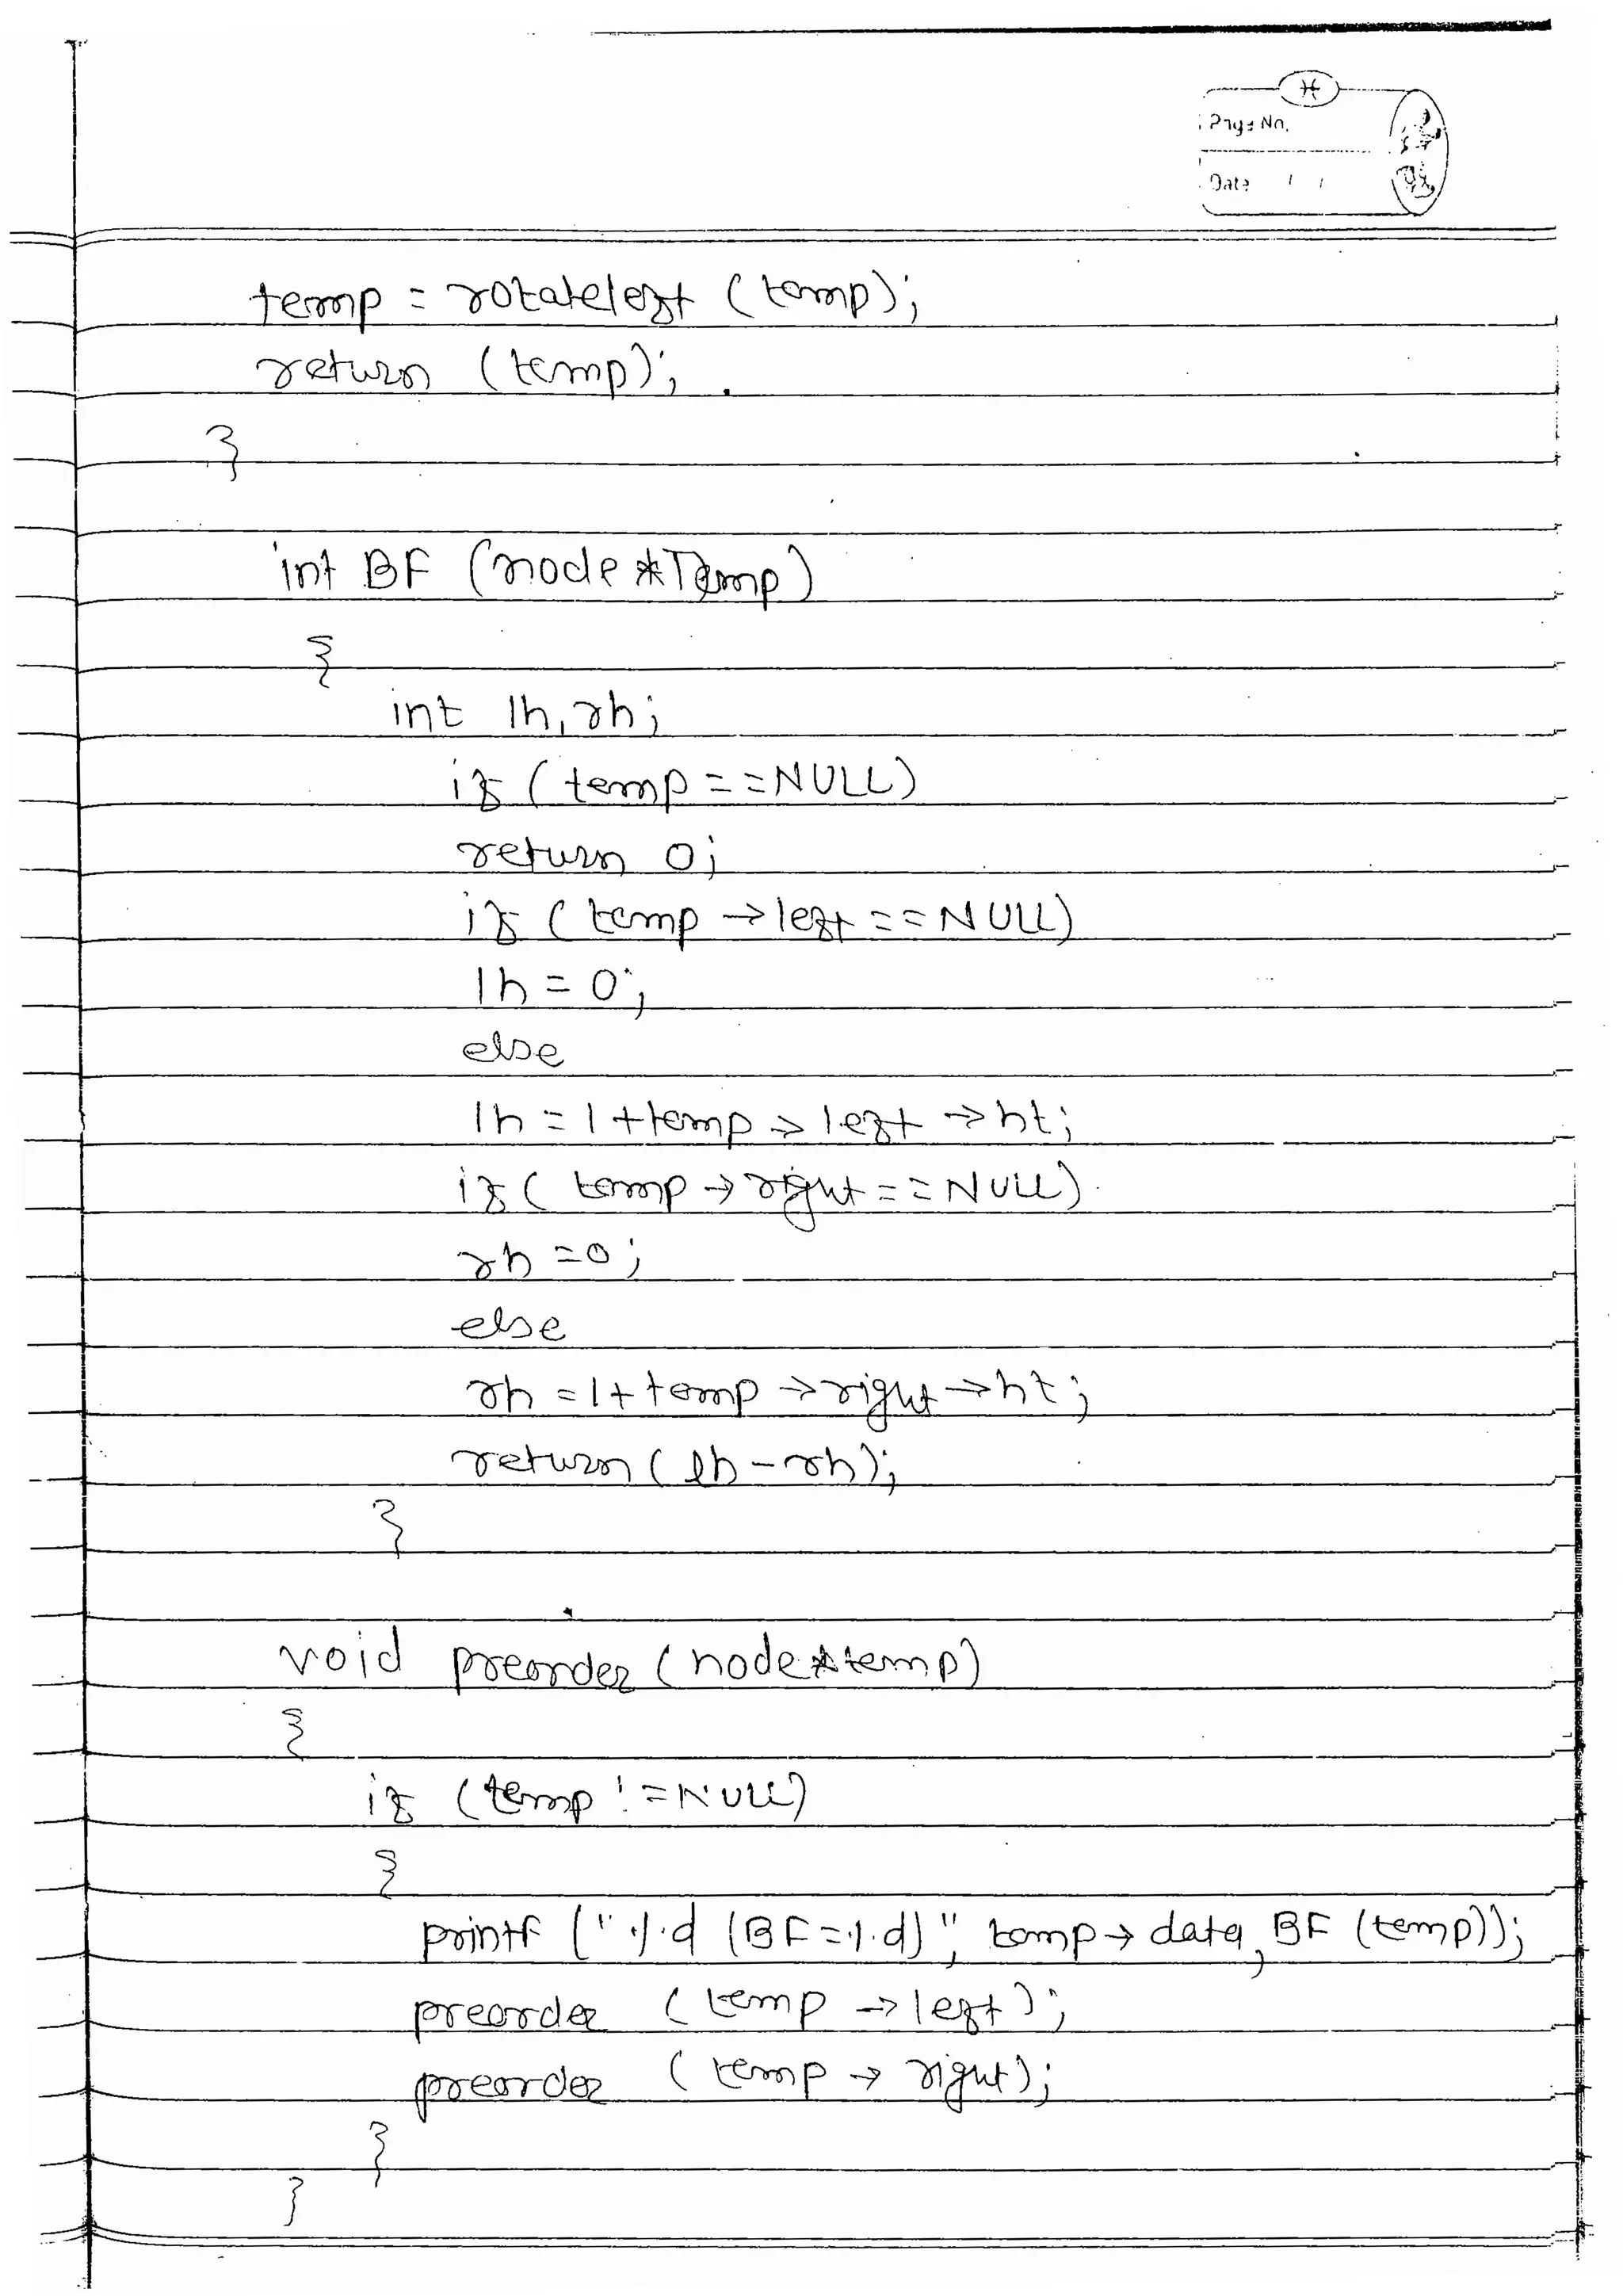 Page No.
Date / /
temp = rotateleft (temp);
return (temp);
}
int BF (node *Temp)
{
int lh, rh;
if (temp == NULL)
return 0;
if (temp → left == NULL)
lh = 0;
else
lh = 1 + temp → left → ht;
if ( temp → right == NULL)
rh = 0;
else
rh = 1 + temp → right → ht;
return ( lh - rh);
}
void preorder ( node *temp)
{
if (temp != NULL)
{
printf (" %d (BF = %d)", temp → data, BF (temp));
preorder ( temp → left );
preorder ( temp → right);
}
}